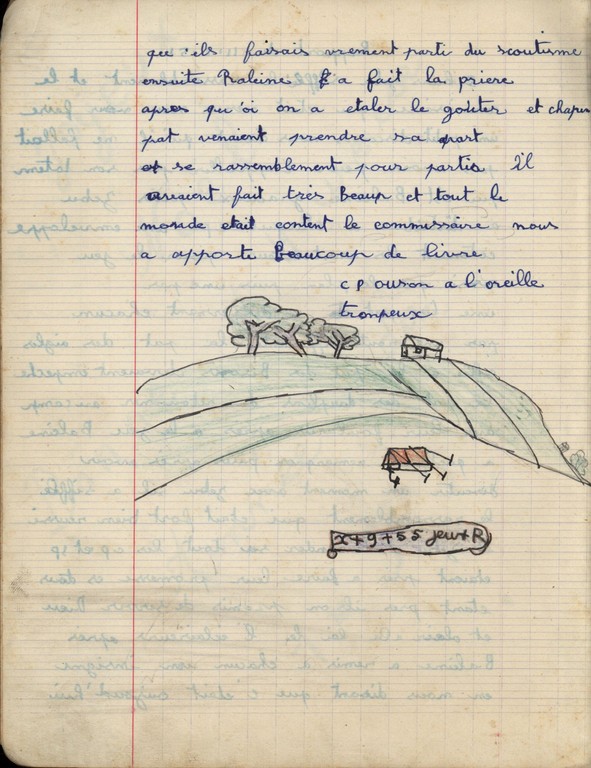 que 'ils faisais vrement parti du scoutisme
ensuite Baleine a fait la priere
apres qu'oi on a etaler le goûter et chaque
pat venaient prendre sa part
et se rassemblement pour partis il
avaient fait très Beaux et tout le
monde etait content le commissaire nous
a apporte Beaucoup de livre
CP ourson a l'oreille
trompeux
x+9+55 jeux+R